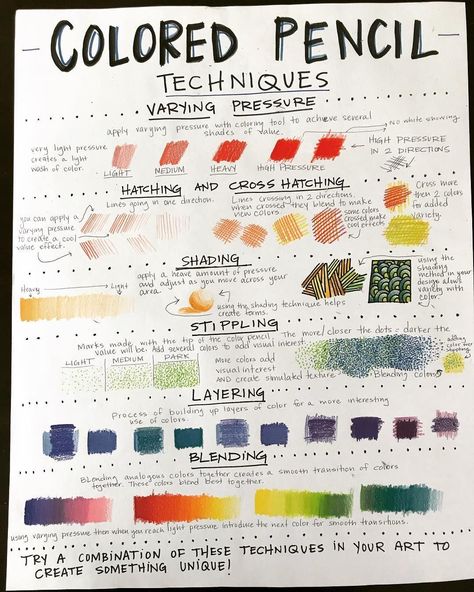 COLORED PENCIL
TECHNIQUES
VARYING PRESSURE
apply varying pressure with coloring tool to achieve several
shades of value.
No white showing.
very light pressure
creates a light
wash of color.
LIGHT
MEDIUM
HEAVY
HIGH PRESSURE
HIGH PRESSURE
IN 2 DIRECTIONS
HATCHING AND CROSS HATCHING
Lines going in one direction.
Lines crossing in 2 directions.
when crossed they blend to make
new colors.
Cross more
then 2 colors
for added
variety.
you can apply a
varying pressure
to create a cool
value effect.
some colors
crossed make
cool effects
SHADING
Heavy
Light
apply a heave amount of pressure
and adjust as you move across your
area.
using the shading technique helps
create forms.
using the
shading
method in your
design allows
variety with
color.
STIPPLING
Marks made, with the tip of the color pencil. The more/closer the dots = darker the
value will be. Add several colors to add visual interest.
LIGHT
MEDIUM
DARK
More colors add
visual interest
AND create simulated texture
Blending colors
adding
color over
stippling
LAYERING
Process of building up layers of color for a more interesting
use of colors.
BLENDING
Blending analogous colors together creates a smooth transition of colors
together. These colors blend best together.
using varying pressure then when you reach light pressure introduce the next color for smooth transitions.
TRY A COMBINATION OF THESE TECHNIQUES IN YOUR ART TO
CREATE SOMETHING UNIQUE!